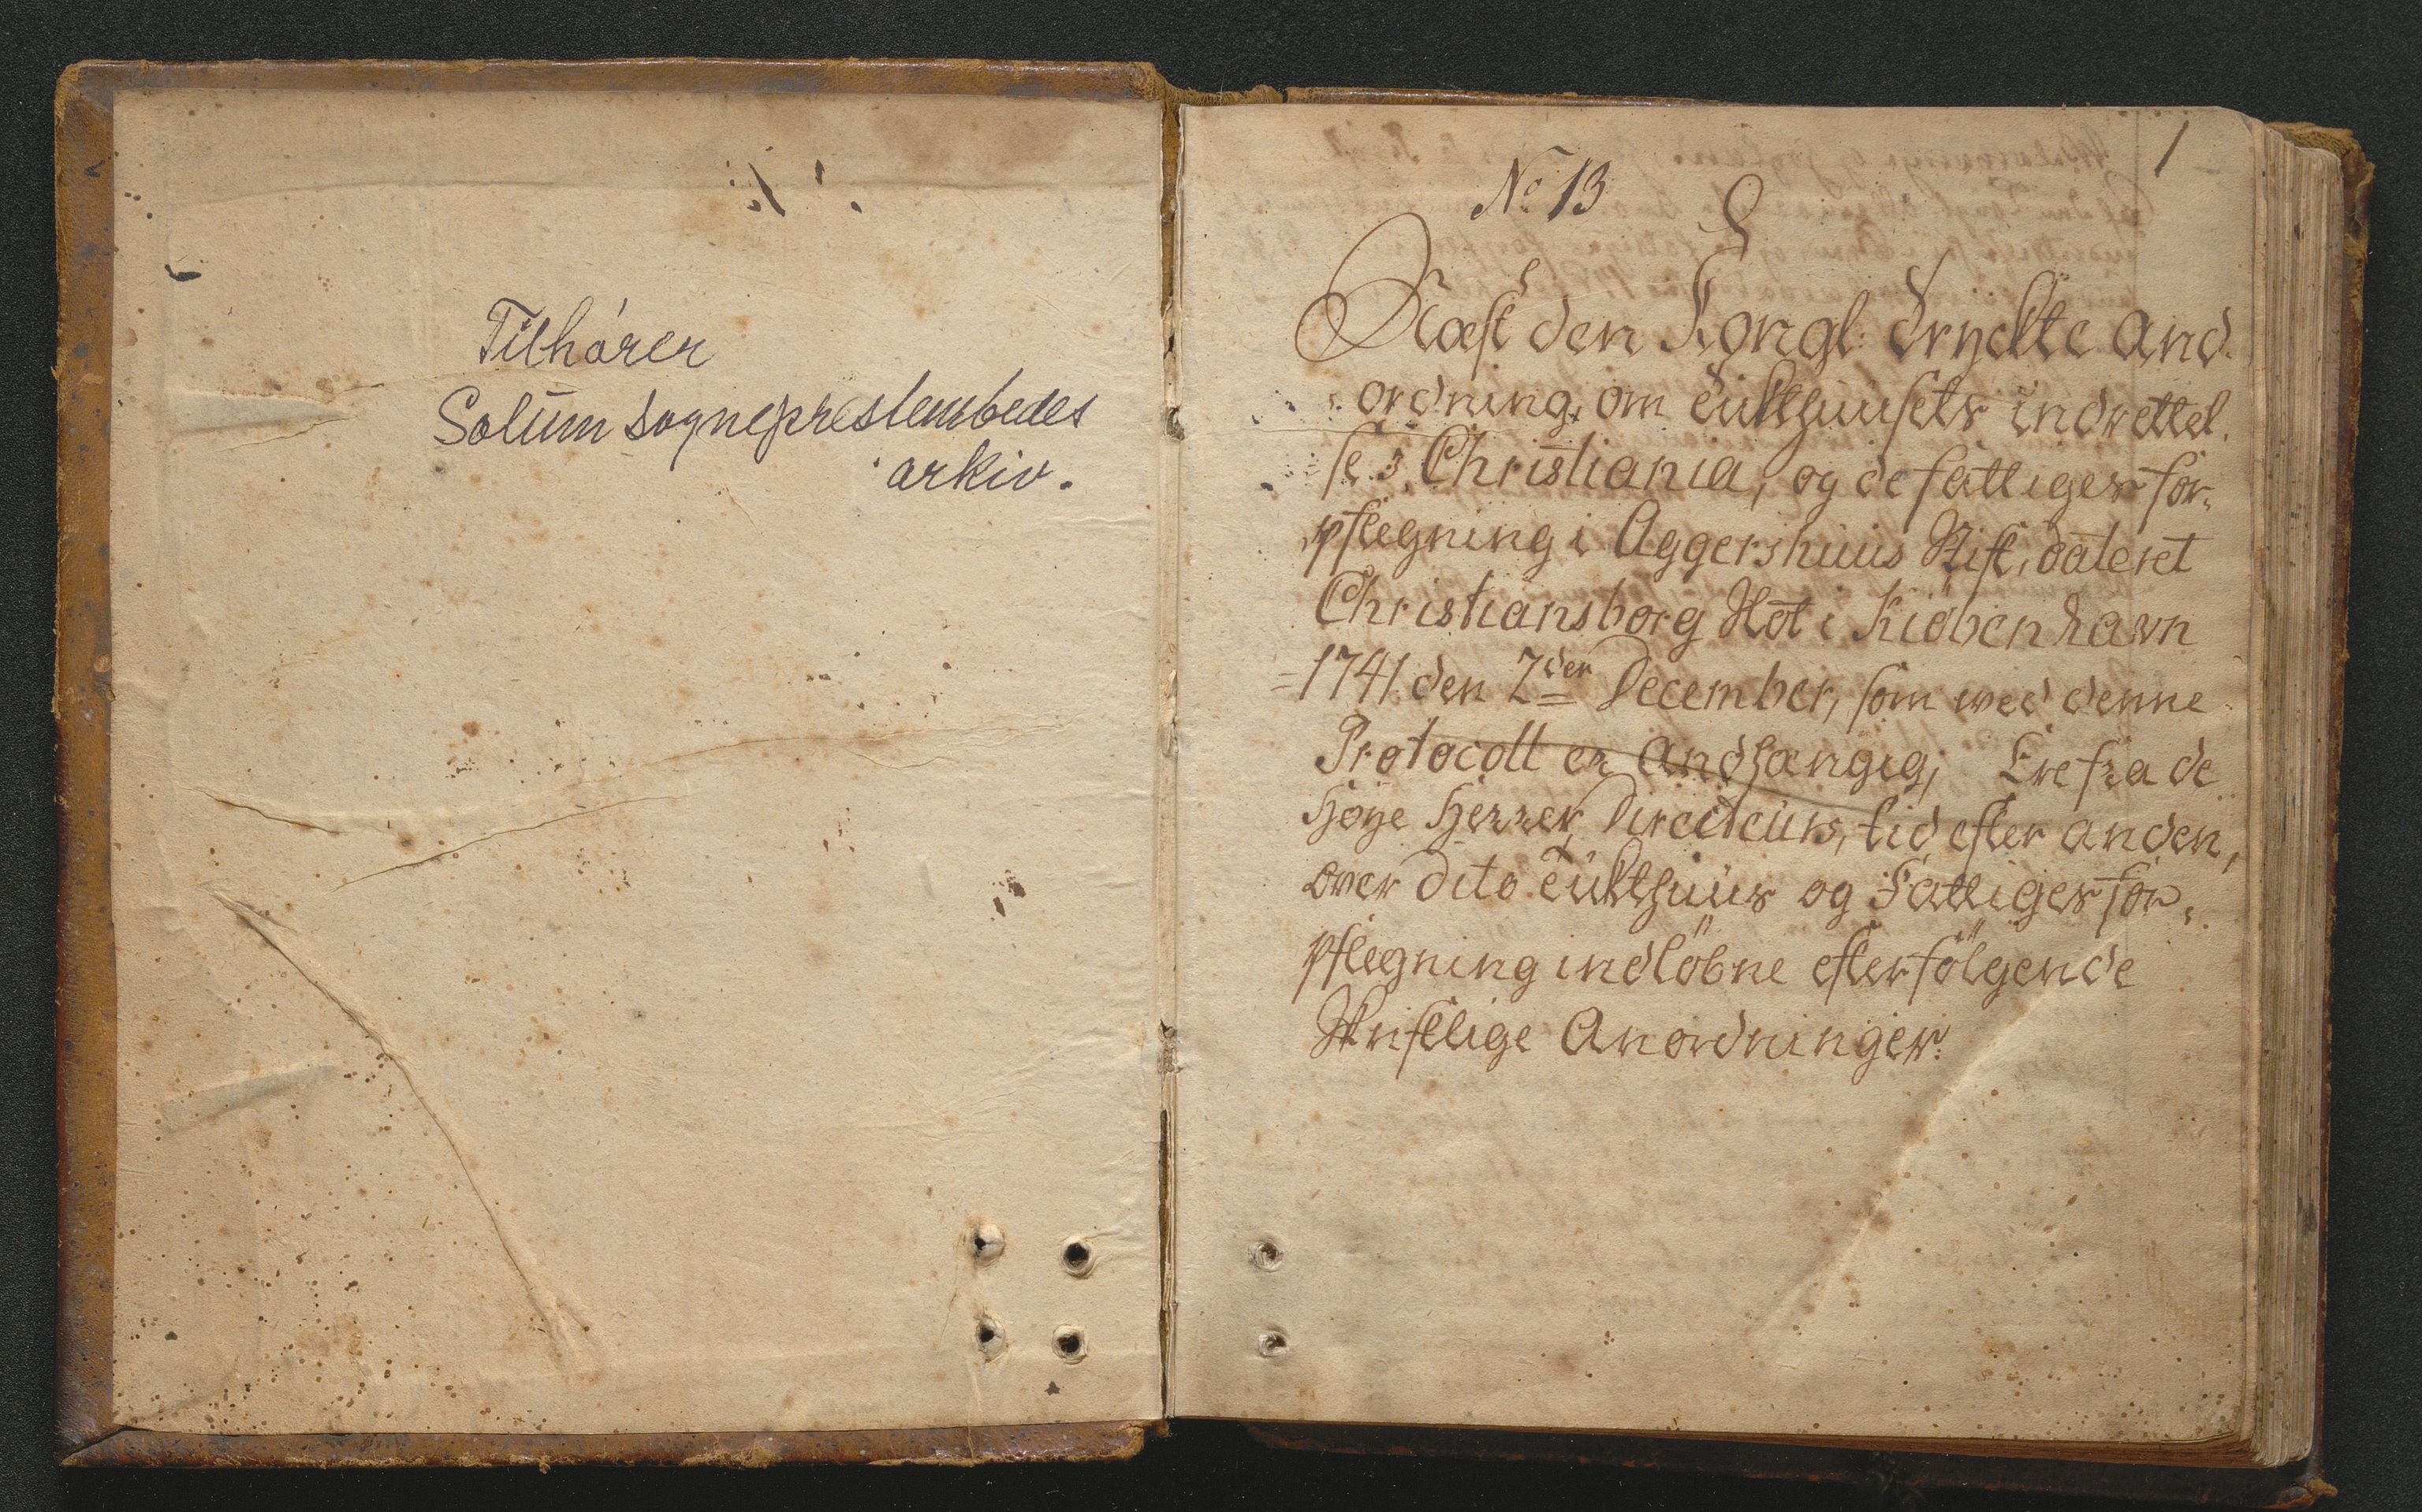 Tilhører
Solum sogneprestembedes
arkiv.
1
No 13
Næst den Kongl: Tryckte And-
ordning, om Tuckthuusets Indrettel-
se i Christiania, og de fattiges for-
pflegning i Aggershuus Stift, dateret
Christiansborg Slot i Kiøbenhavn
1741 den 2den December, som wed denne
Protocoll er Andhængig, Ere fra de
Høye Herrer Directeurs, tid efter anden,
over dito Tuckthuus og Fattiges for-
pflegning indløbne efterfølgende
Skriftlige Anordninger: